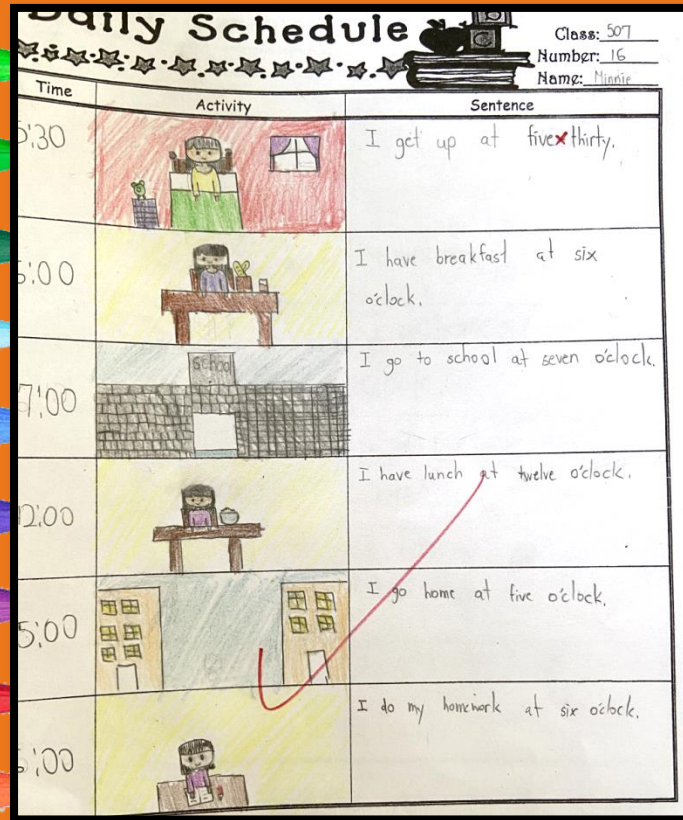 Daily Schedule
Class: 507
Number: 16
Name: Minnie
Time
Activity
Sentence
5:30
I get up at five thirty.
6:00
I have breakfast at six
o'clock.
School
7:00
I go to school at seven o'clock.
12:00
I have lunch at twelve o'clock.
5:00
I go home at five o'clock.
6:00
I do my homework at six o'clock.